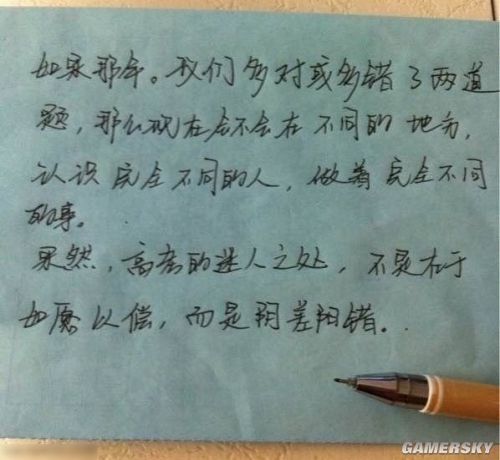 如果那年。我们多对或多错了两道
题，那么现在会不会在不同的地方，
认识完全不同的人，做着完全不同
的事。
果然，高考的迷人之处，不是在于
如愿以偿，而是阴差阳错。
GAMERSKY